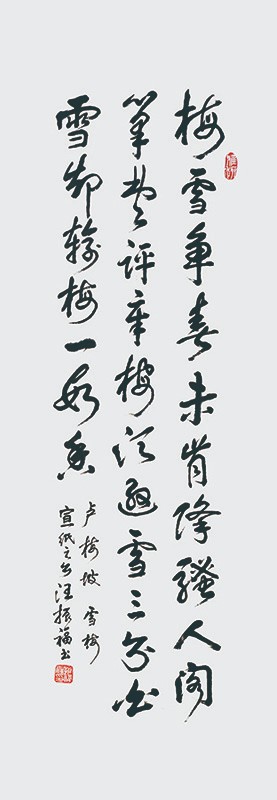 梅雪争春未肯降騷人阁
筆费评章梅须遜雪三分白
雪却输梅一段香
卢梅坡 雪梅
宣纸之乡汪振福书